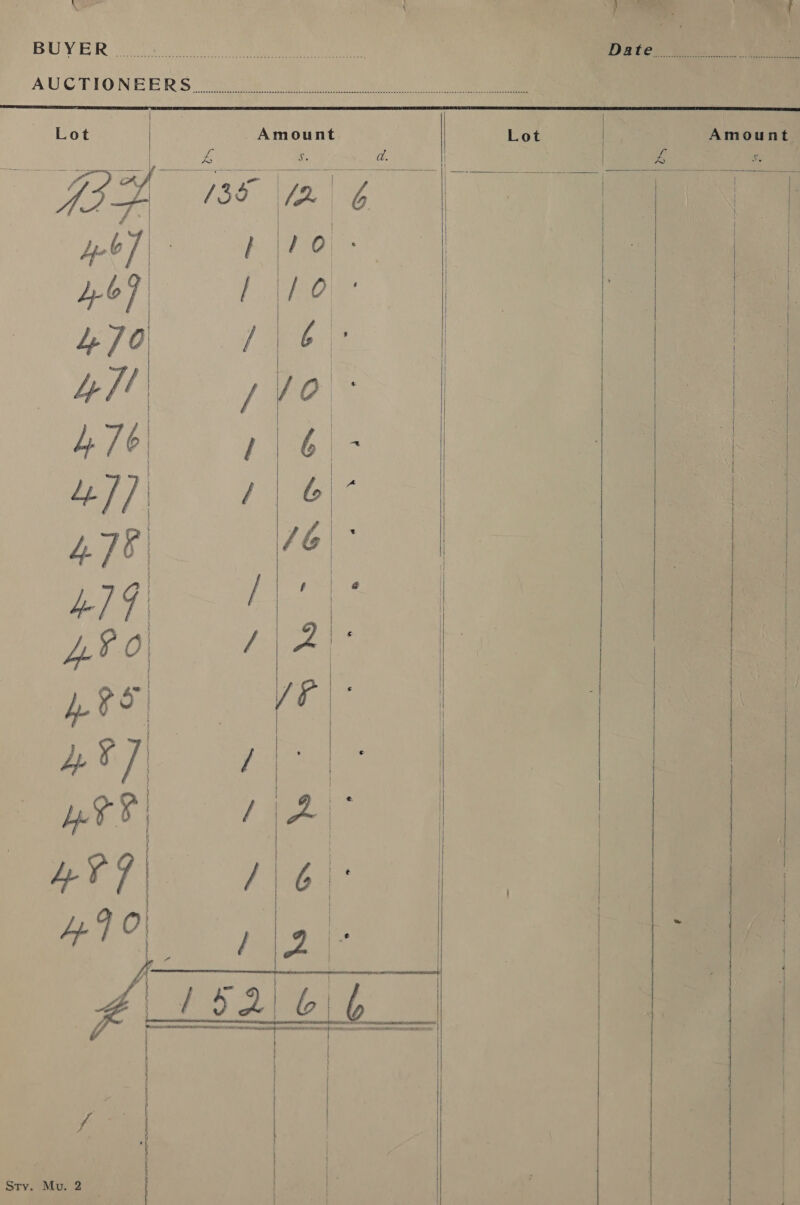 BUYER Date
AUCTIONEERS
Lot Amount Lot Amount
£ s. d. £ s.
135 12 6
467 1 10 -
469 1 10 -
470 1 6 -
471 1 10 -
476 1 6 -
477 1 6 -
478 16 -
479 1 - -
480 1 2 -
485 18 -
487 1 - -
488 1 2 -
489 1 6 -
490 1 2 -
£ 152 6 6
Sty. Mu. 2